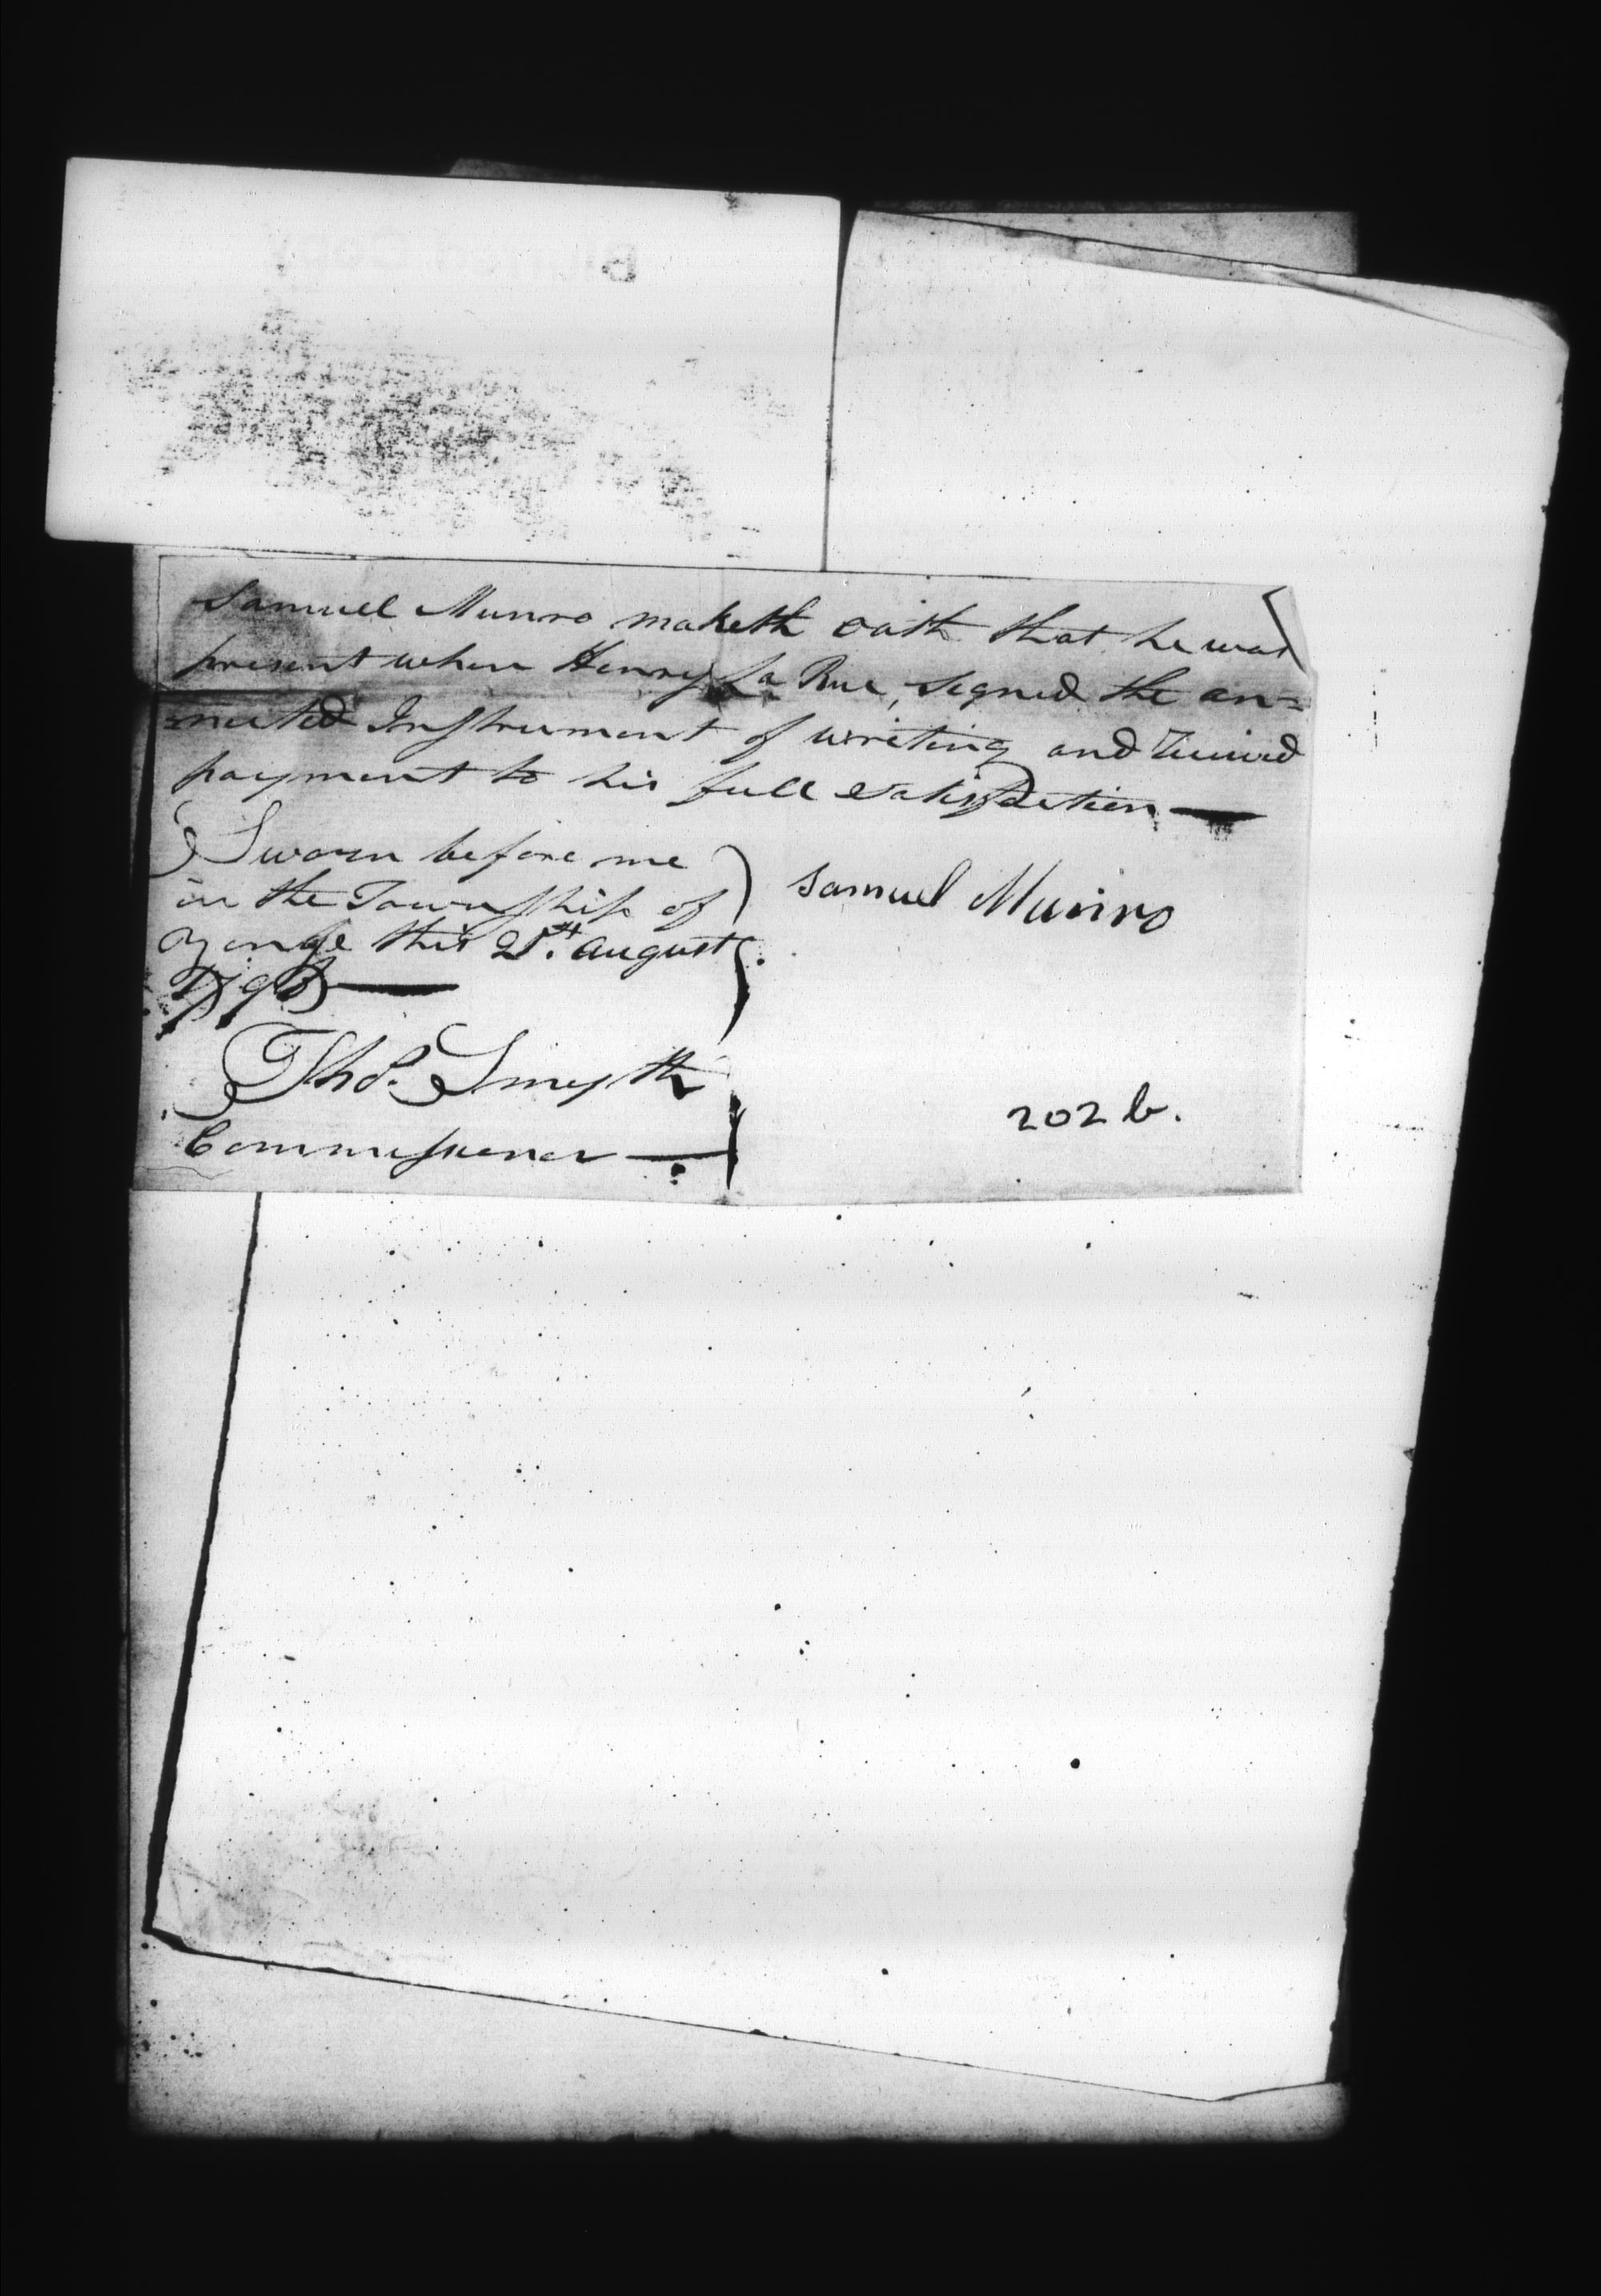 Samuel Munro maketh oath that he was
present when Henry La Rue, signed the an=
=nected Instrument of writing and
payment to his full Satisfaction —
Sworn before me
in the Township of
Yonge this 21st. august
Samuel Munro
Thos. Smyth
Commissioner —
202 b.